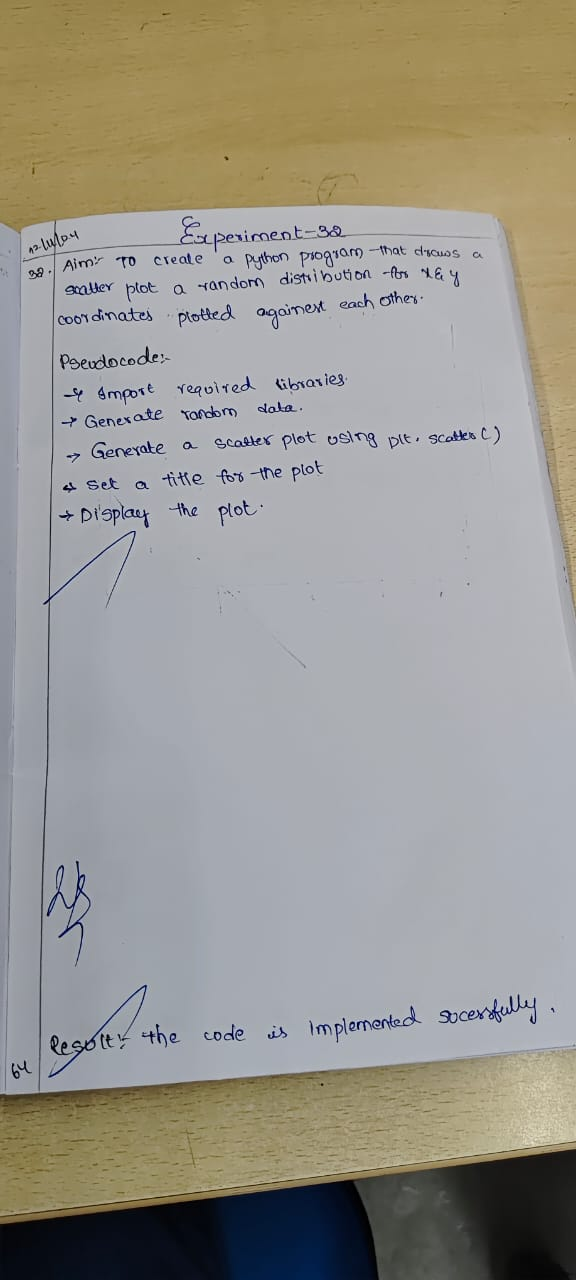 Experiment-38
12/11/24
38. Aim:- To create a python program that draws a
scatter plot a random distribution for X & y
coordinates plotted againest each other.
Pseudocode:-
→ Import required libraries.
→ Generate random data.
→ Generate a scatter plot using plt. scatter()
→ Set a title for the plot
→ Display the plot.
Result:- the code is implemented sucessfully.
64